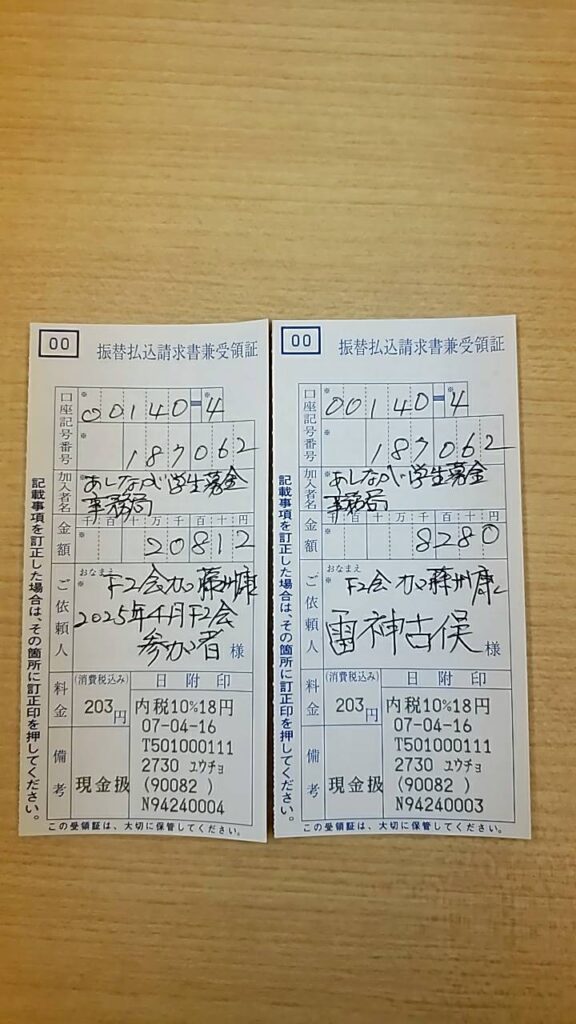 00
振替払込請求書兼受領証
口座記号番号
00140-4
187062
加入者名
あしなが学生募金
事務局
金額
千百十万千百十円
20812
ご依頼人
おなまえ
2025年4月F2会
参加者 様
料金
(消費税込み)
203円
日附印
内税10%18円
07-04-16
T501000111
2730 ユウチョ
(90082 )
N94240004
備考
現金扱
記載事項を訂正した場合は、その箇所に訂正印を押してください。
この受領証は、大切に保管してください。
00
振替払込請求書兼受領証
口座記号番号
00140-4
187062
加入者名
あしなが学生募金
事務局
金額
千百十万千百十円
8280
ご依頼人
おなまえ
雷神古俣 様
料金
(消費税込み)
203円
日附印
内税10%18円
07-04-16
T501000111
2730 ユウチョ
(90082 )
N94240003
備考
現金扱
記載事項を訂正した場合は、その箇所に訂正印を押してください。
この受領証は、大切に保管してください。